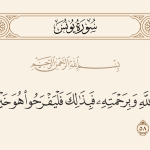 سُورَةُ يُونُسَ
بِسْمِ ٱللَّهِ ٱلرَّحْمَٰنِ ٱلرَّحِيمِ
للَّهِ وَبِرَحْمَتِهِۦ فَبِذَٰلِكَ فَلْيَفْرَحُوا۟ هُوَ خَيْرٌ
٥٨